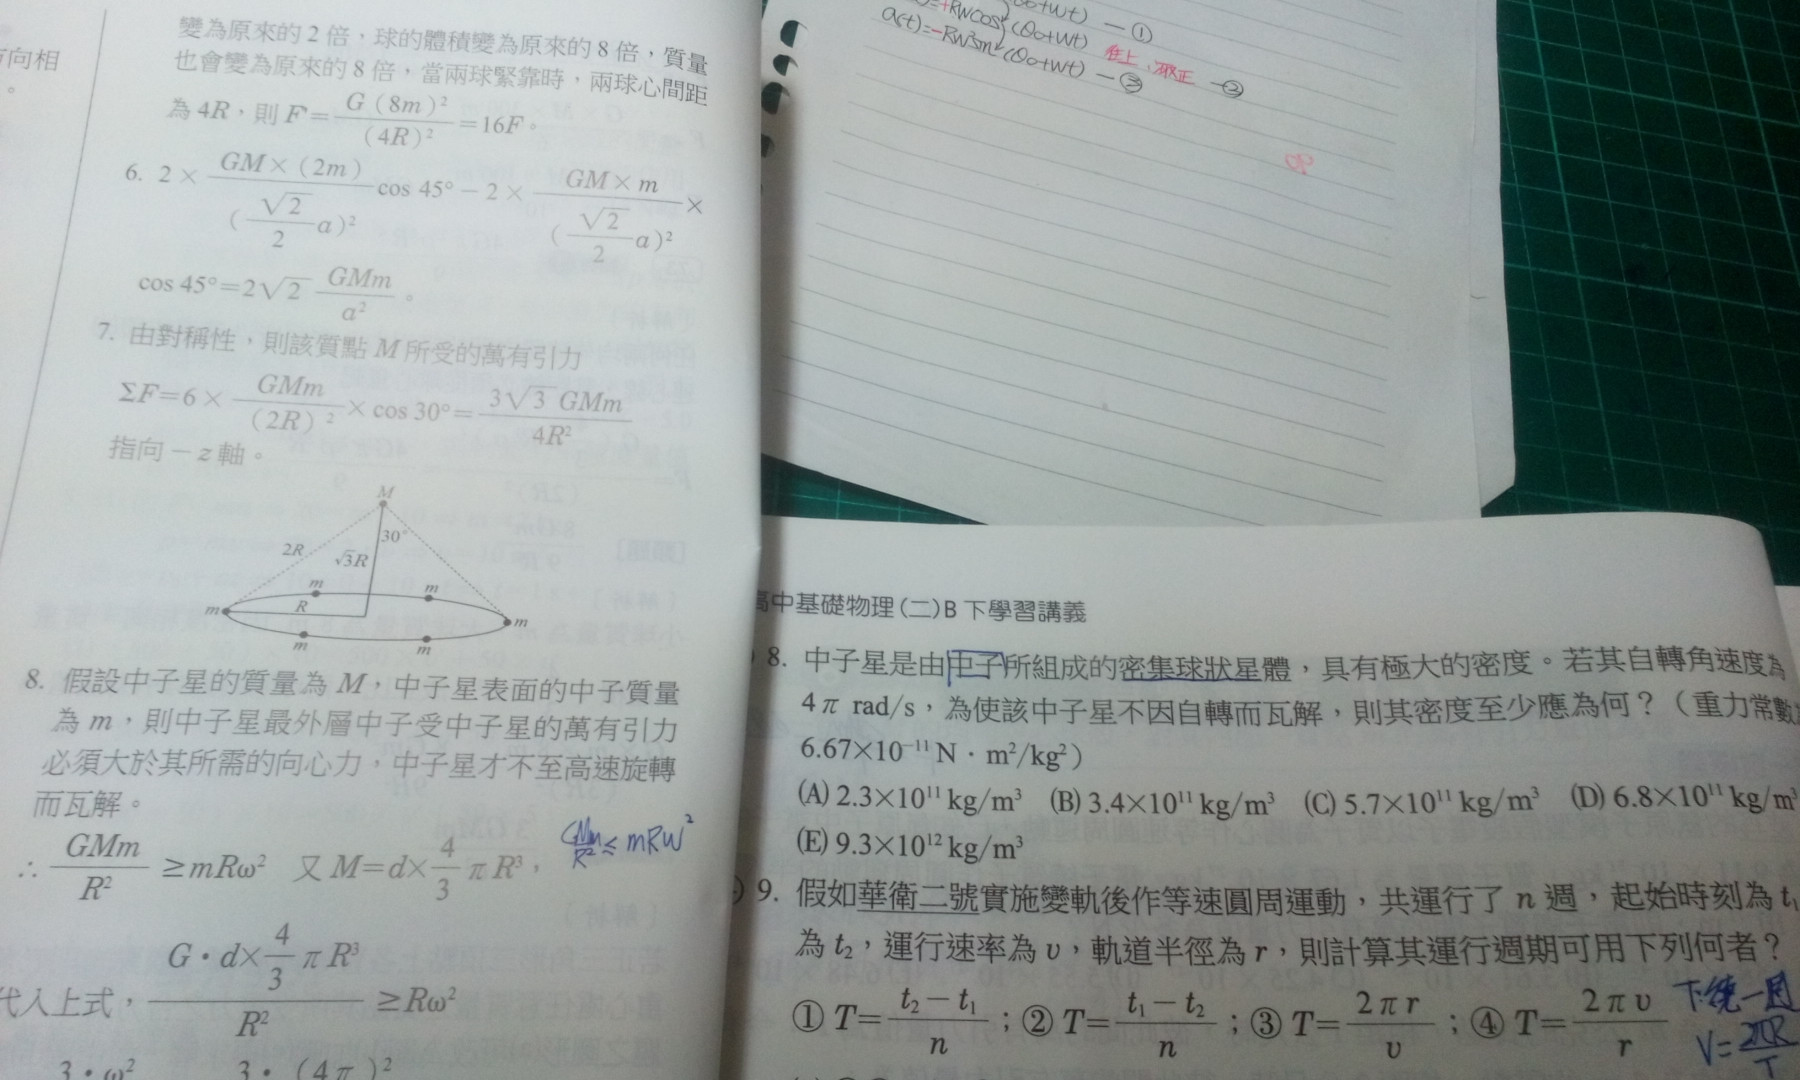 方向相
。
變為原來的 2 倍，球的體積變為原來的 8 倍，質量
也會變為原來的 8 倍，當兩球緊靠時，兩球心間距
為 4R，則 F=G(8m)²/(4R)²=16F。
6. 2×GM×(2m)/(√2/2 a)² cos 45°−2×GM×m/(√2/2 a)²×
cos 45°=2√2 GMm/a²。
7. 由對稱性，則該質點 M 所受的萬有引力
ΣF=6×GMm/(2R)²×cos 30°=3√3 GMm/4R²
指向－z 軸。
M
30°
2R
√3R
m
m
m
R
m
m
m
8. 假設中子星的質量為 M，中子星表面的中子質量
為 m，則中子星最外層中子受中子星的萬有引力
必須大於其所需的向心力，中子星才不至高速旋轉
而瓦解。
∴ GMm/R² ≥mRω² 又 M=d×4/3 πR³，
GMm/R² ≤ mRW²
代入上式，G・d×4/3 πR³/R² ≥Rω²
3・ω² 3・(4π)²
=+RWcos(θo+Wt) 往上，取正 —②
a(t)=-RW²sin(θo+Wt) —③
—①
高中基礎物理(二)B 下學習講義
8. 中子星是由中子所組成的密集球狀星體，具有極大的密度。若其自轉角速度為
4π rad/s，為使該中子星不因自轉而瓦解，則其密度至少應為何？（重力常數為
6.67×10⁻¹¹ N・m²/kg²）
(A) 2.3×10¹¹ kg/m³ (B) 3.4×10¹¹ kg/m³ (C) 5.7×10¹¹ kg/m³ (D) 6.8×10¹¹ kg/m³
(E) 9.3×10¹² kg/m³
9. 假如華衛二號實施變軌後作等速圓周運動，共運行了 n 週，起始時刻為 t₁
為 t₂，運行速率為 υ，軌道半徑為 r，則計算其運行週期可用下列何者？
① T=t₂−t₁/n；② T=t₁−t₂/n；③ T=2πr/υ；④ T=2πυ/r
T:繞一周
V=2πR/T